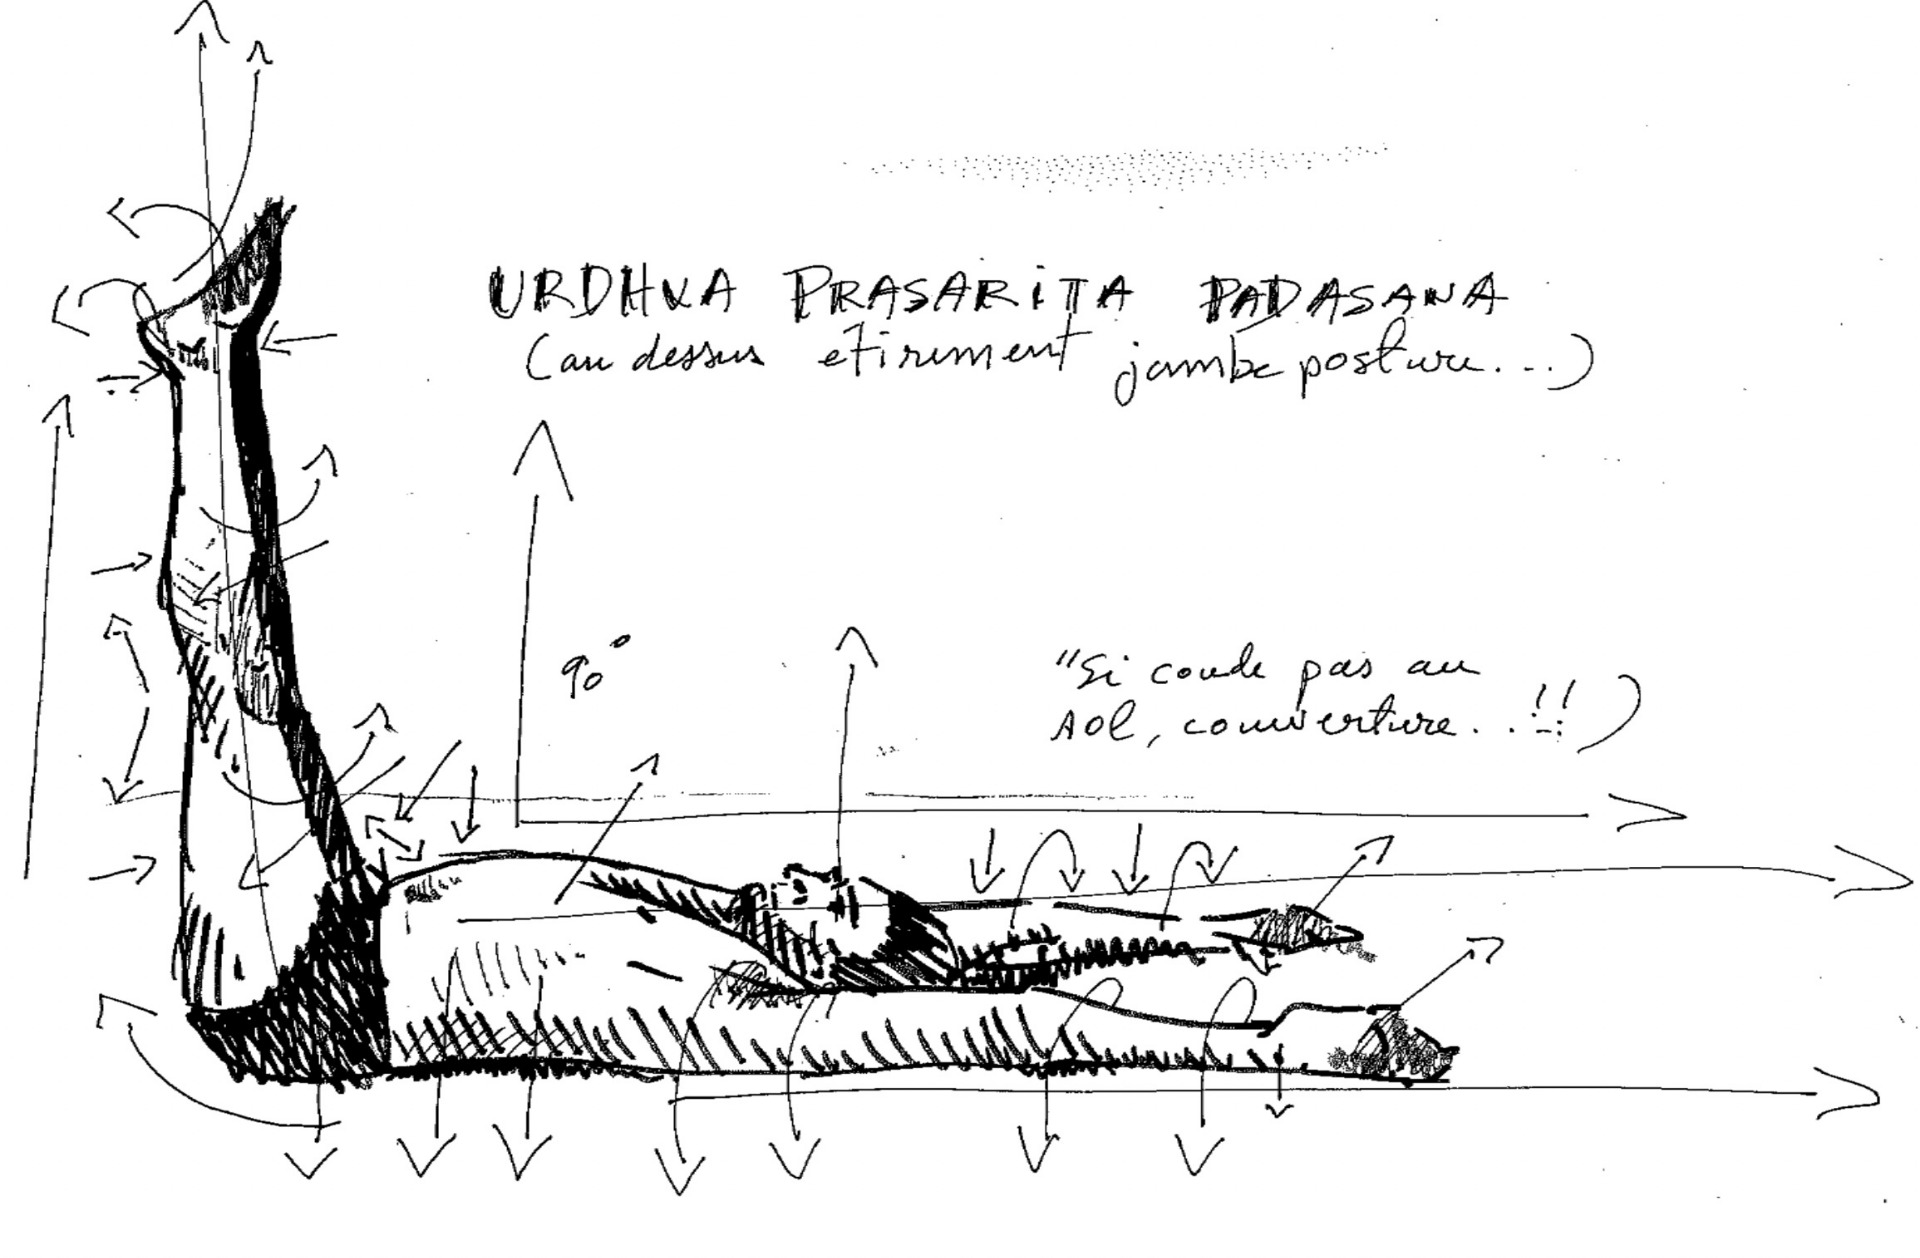 URDHVA PRASARiTA PADASANA
(au dessus etirement jambe posture...)
90°
"Si coude pas au
sol, couverture...!!)